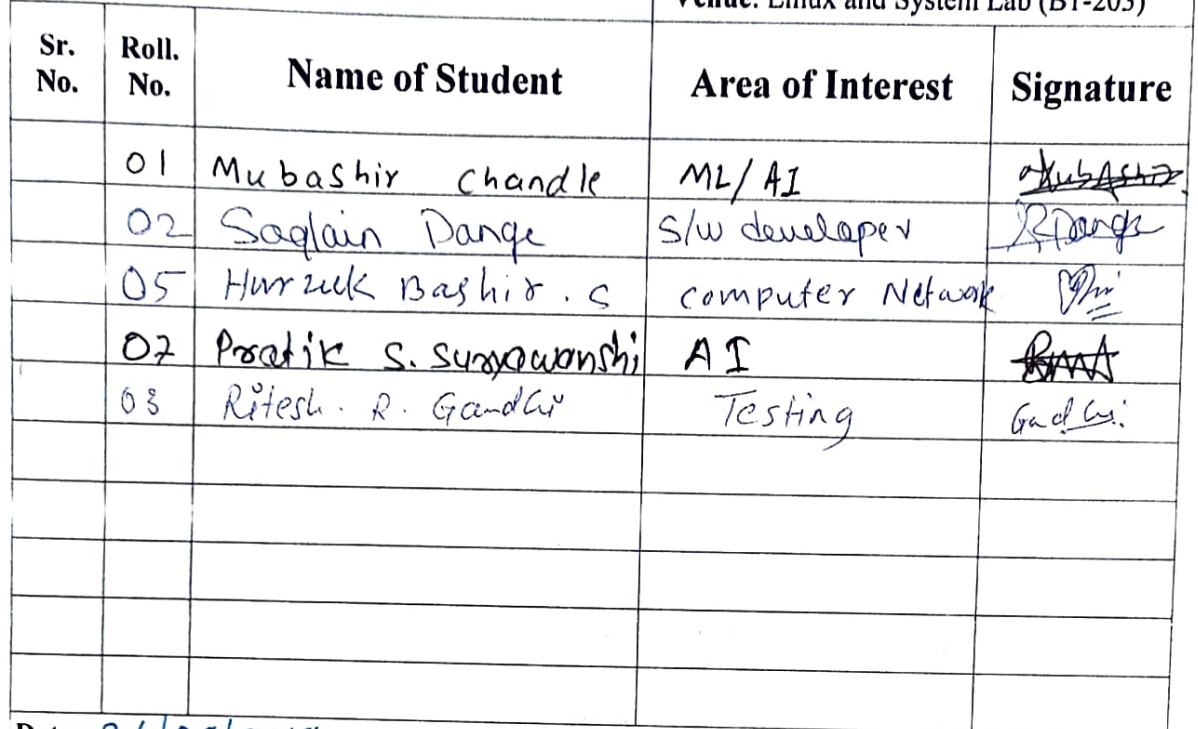 Venue: Linux and System Lab (BT-203)
Sr. No. Roll. No. Name of Student Area of Interest Signature
01 Mubashir Chandle ML/AI Mubashir
02 Saqlain Dange S/w developer Dange
05 Hurzuk Bashir . S Computer Network
07 Pratik S. Suryawanshi AI
03 Ritesh. R. Gandhi Testing Gadhi